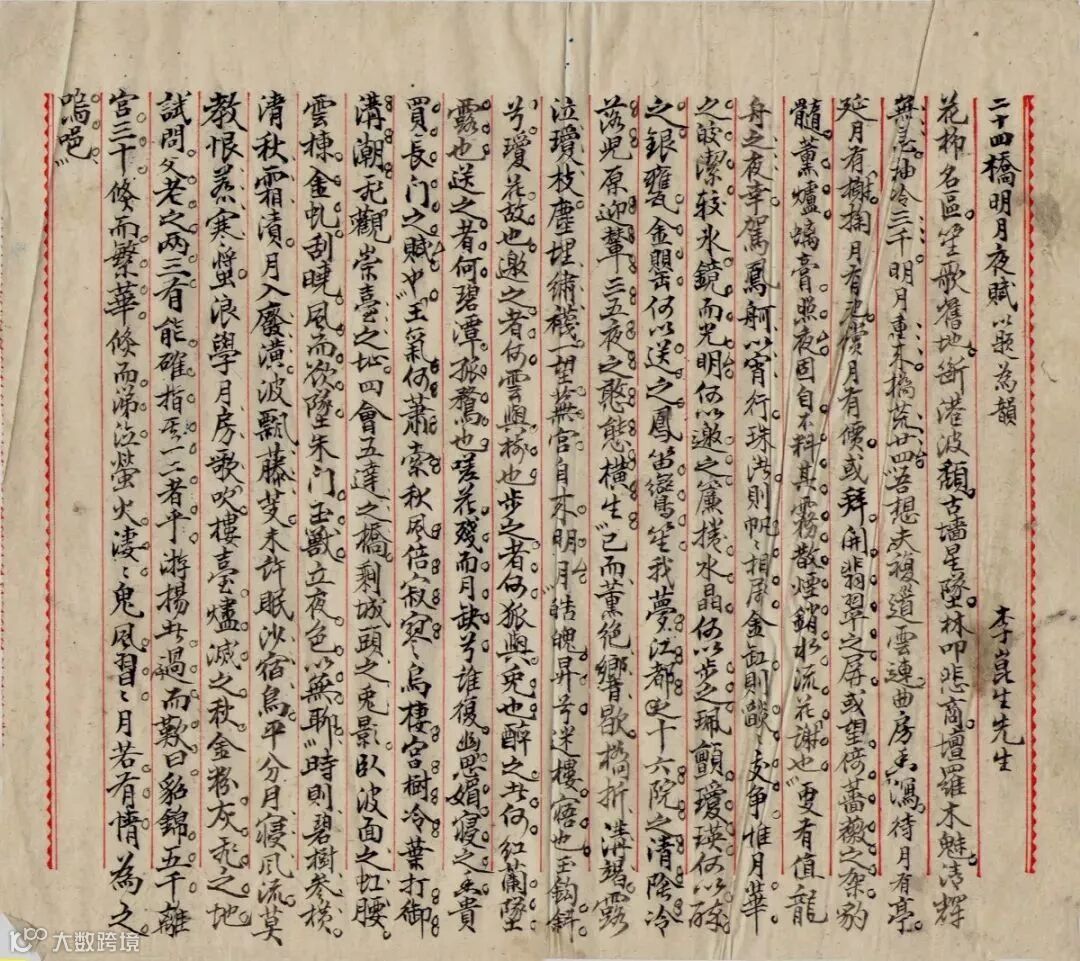 二十四橋明月夜賦以題為韻 李崑生先生
花柳名區笙歌舊地斷港波頹古牆星墜林叩悲商壇羅木魅清輝
無恙抽冷三千明月重來橋荒廿四吾想夫複道雲連曲房香瀉待月有亭
延月有榭掬月有池償月有價或拜開翡翠之屏或望倚薔薇之架豹
髓薰爐螭膏照夜固自不料其霧散煙銷水流花謝也更有值龍
舟之夜幸駕鳳舸以宵行珠港則帆〻相屬金缸則燄〻交爭惟月華
之皎潔較氷鏡而光明何以邀之簾捲水晶何以步之珮顫瓊瑛何以酹
之銀甕金罌何以送之鳳笛鸞笙我夢江都之十六院之清陰冷
落兒原迎輦三五夜之憨態橫生已而薰絕響歇橋折溝竭露
泣瓊枝塵埋繡襪望蕪宮自來明月皓魄昇兮迷樓寤也玉鈎斜
兮瓊花故也邀之者何雲與樹也步之者何狐與兔也醉之者何紅蘭墜
露也送之者何碧潭振鶩也嗟花殘而月缺兮誰復幽思媚寢之香貴
買長门之賦也王氣何蕭索秋風倍寂寞烏棲宮樹冷葉打御
溝潮祗觀崇臺之址四會五達之橋剩城頭之兔影臥波面之虹腰
雲棟金虬刮曉風而欲墜朱门玉獸立夜色以無聊時則碧樹參橫
清秋霜漬月入廢潢波飄藤芰未許眠沙宿鳥平分月寢風流莫
教恨惹寒螿浪學月房歌吹樓臺燼滅之秋金粉灰飛之地
試問父老之兩三有能確指其一二者乎游揚者過而歎曰貂錦五千離
宮三十倏而繁華倏而涕泣螢火淒〻鬼風習〻月若有情為之
嗚咽
大数跨境